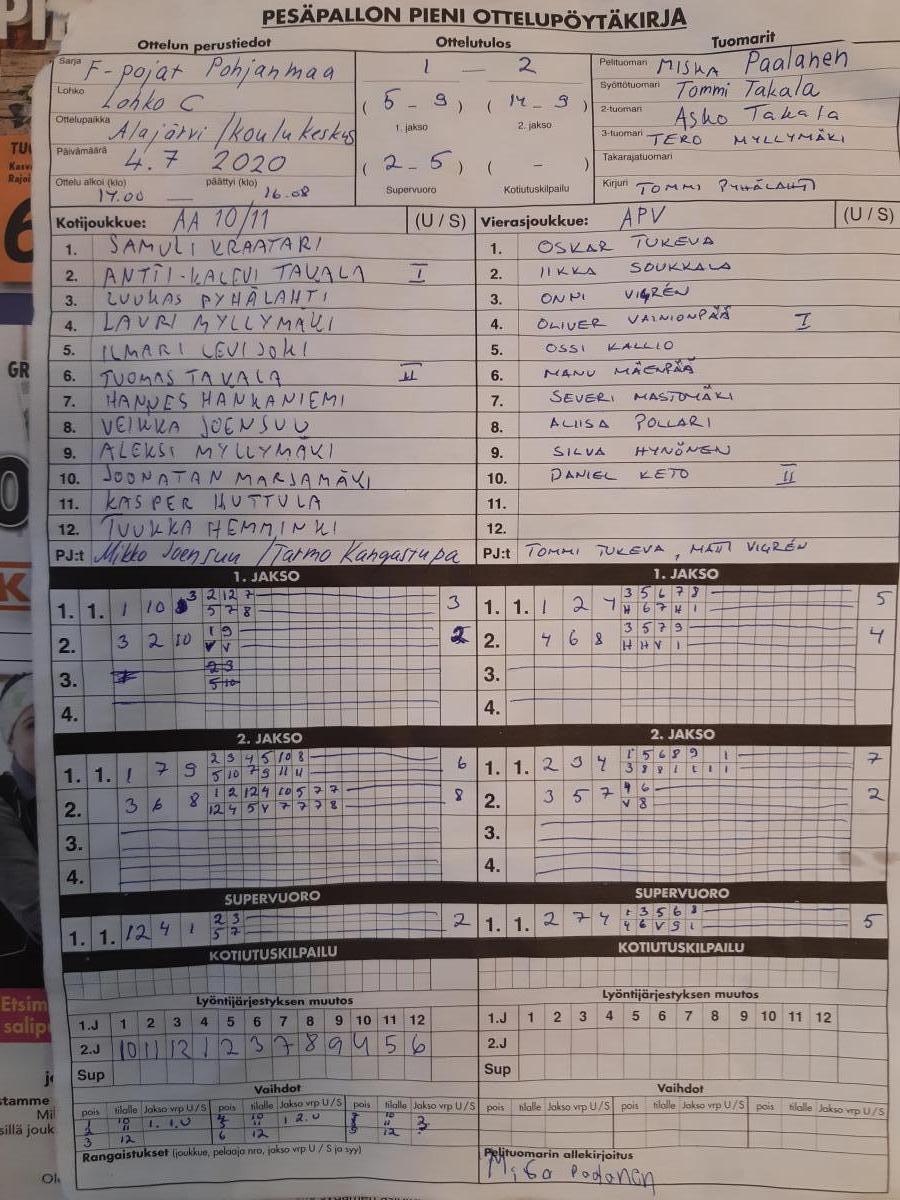 PESÄPALLON PIENI OTTELUPÖYTÄKIRJA
Ottelun perustiedot
Sarja F-pojat Pohjanmaa
Lohko Lohko C
Ottelupaikka Alajärvi/koulukeskus
Päivämäärä 4.7 2020
Ottelu alkoi (klo) päättyi (klo)
14.00 — 16.08
Ottelutulos
1 — 2
( 5 - 9 ) ( 14 - 9 )
1. jakso 2. jakso
( 2 - 5 ) ( - )
Supervuoro Kotiutuskilpailu
Tuomarit
Pelituomari MISKA Paalanen
Syöttötuomari Tommi Takala
2-tuomari Asko Takala
3-tuomari TERO MYLLYMÄKI
Takarajatuomari
Kirjuri TOMMI PYHÄLAHTI
Kotijoukkue: AA 10/11 (U / S)
1. SAMULI KRAATARI
2. ANTTI-KALEVI TAKALA I
3. LUUKAS PYHÄLAHTI
4. LAURI MYLLYMÄKI
5. ILMARI LEVIJOKI
6. TUOMAS TAKALA II
7. HANNES HANKANIEMI
8. VEIKKA JOENSUU
9. ALEKSI MYLLYMÄKI
10. JOONATAN MARJAMÄKI
11. KASPER HUTTULA
12. TUUKKA HEMMINKI
PJ:t Mikko Joensuu /Tarmo Kangastupa
Vierasjoukkue: APV (U / S)
1. OSKAR TUKEVA
2. IIKKA SOUKKALA
3. ONNI VIGRÉN
4. OLIVER VAINIONPÄÄ I
5. OSSI KALLIO
6. MANU MÄENPÄÄ
7. SEVERI MASTOMÄKI
8. ALIISA POLLARI
9. SILVA HYNÖNEN
10. DANIEL KETO II
11.
12.
PJ:t TOMMI TUKEVA, MATTI VIGRÉN
1. JAKSO
1. 1. 1 10 3 2 12 7 3
5 7 8
2. 3 2 10 1 9 2
V V
3.
4.
1. JAKSO
1. 1. 1 2 4 3 5 6 7 8 5
H 6 7 H 1
2. 4 6 8 3 5 7 9 4
H H V 1
3.
4.
2. JAKSO
1. 1. 1 7 9 2 3 4 5 10 8 6
5 10 7 9 11 11
2. 3 6 8 1 2 12 4 10 5 7 7 8
12 4 5 V 7 7 7 8
3.
4.
2. JAKSO
1. 1. 2 3 4 1 5 6 8 9 1 7
3 8 8 1 1 1 1
2. 3 5 7 4 6 2
V 8
3.
4.
SUPERVUORO
1. 1. 12 4 1 2 3 2
5 7
SUPERVUORO
1. 1. 2 7 4 1 3 5 6 8 5
4 6 V 9 1
KOTIUTUSKILPAILU
KOTIUTUSKILPAILU
Lyöntijärjestyksen muutos
1.J 1 2 3 4 5 6 7 8 9 10 11 12
2.J 10 11 12 1 2 3 7 8 9 4 5 6
Sup
Lyöntijärjestyksen muutos
1.J 1 2 3 4 5 6 7 8 9 10 11 12
2.J
Sup
Vaihdot
pois tilalle Jakso vrp U / S pois tilalle Jakso vrp U / S pois tilalle Jakso vrp U / S
1 10 1. 1.U
2 11
3 12 6 12
Vaihdot
pois tilalle Jakso vrp U / S pois tilalle Jakso vrp U / S pois tilalle Jakso vrp U / S
Rangaistukset (joukkue, pelaaja nro, jakso vrp U / S ja syy)
Pelituomarin allekirjoitus
GR
Etsim
salip
stamme